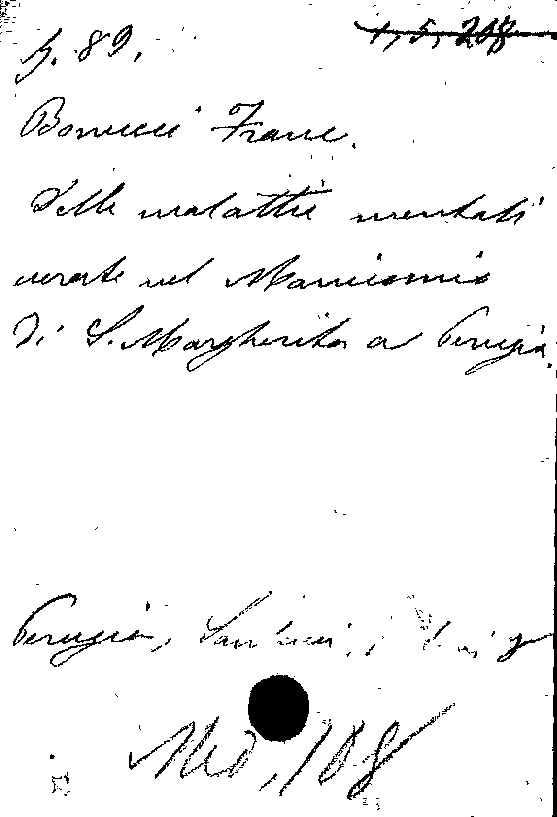 h. 89.
1, 5, 208
Bonucci Franc.
Delle malattie mentali
curate nel Manicomio
di S. Margherita a Perugia.
Perugia, Santucci,
Med, 108